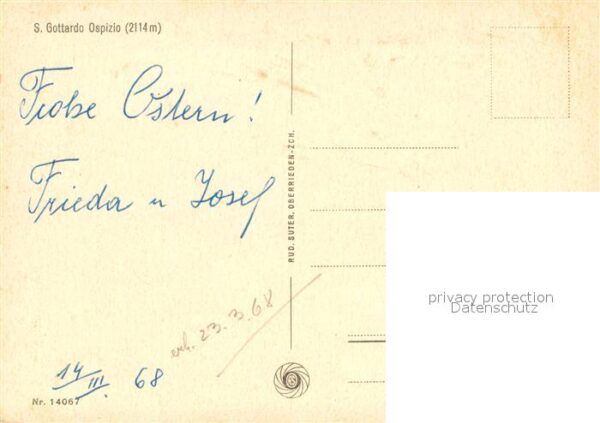 S. Gottardo Ospizio (2114m)
Frohe Ostern!
Frieda u Josef
erh. 23.3.68
14/III. 68
Nr. 14067
RUD. SUTER, OBERRIEDEN-ZCH.
privacy protection
Datenschutz